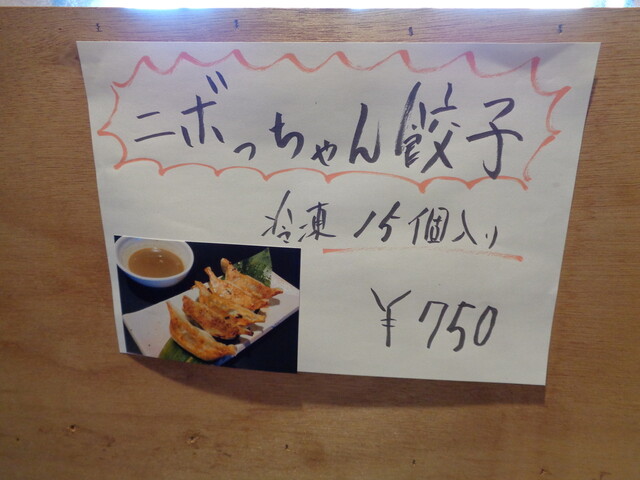 ニボっちゃん餃子
冷凍 15個入り
￥750